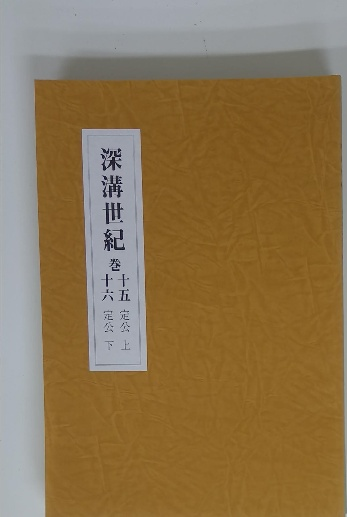 深溝世紀 巻
十五 定公 上
十六 定公 下